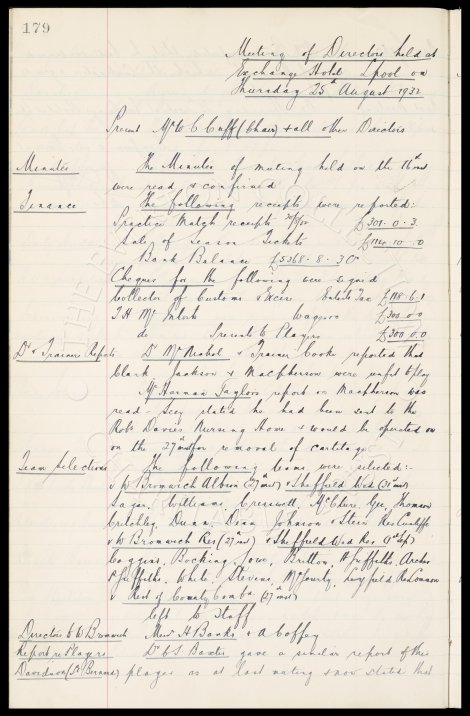 179
Meeting of Directors held at
Exchange Hotel Lpool on
Thursday 25th August 1932
Present Mr W C Cuff (Chair) & all other Directors
Minutes The Minutes of meeting held on the 16th inst
were read & confirmed
Finance The following receipts were reported:-
Practice Match receipts £301. 0. 3.
Sale of Season Tickets £1124. 10. 0
Bank Balance £5368. 8. 3 Cr
Cheques for the following were signed
Collector of Customs & Excise Entets Tax £118. 6. 1
T H McIntosh Wages £300. 0. 0
do Presents to Players £300. 0. 0
Dr & Trainers Reports Dr McNichol & Trainer Cooke reported that
Clark Jackson & Macpherson were unfit to play
Mr Harman Taylors report on Macpherson was
read - Secy stated he had been sent to the
Robt Davies Nursing Home & would be operated on
on the 27 inst for removal of cartilage
Team Selections The following teams were selected:-
v W Bromwich Albion (27th inst) & Sheffield Wed (31st inst)
Sagar, Williams, Cresswell, McClure, Gee, Thomson
Critchley, Dunn, Dean Johnson & Stein Res Cunliffe
v W Bromwich Res (27th inst) & Sheffield Wed Res (1st Sep)
Coggins, Bocking, Lowe, Britton, H Griffiths, Archer
P Griffiths, White, Stevens, McGourty, Res Common
v Rest of County Comb. (27th inst)
left to Staff
Directors to W Bromwich Messrs A Banks & A Coffey
Report re Players Dr C S Baxter gave a similar report of this
Davidson (St Bernards) player as at last meeting & now stated that